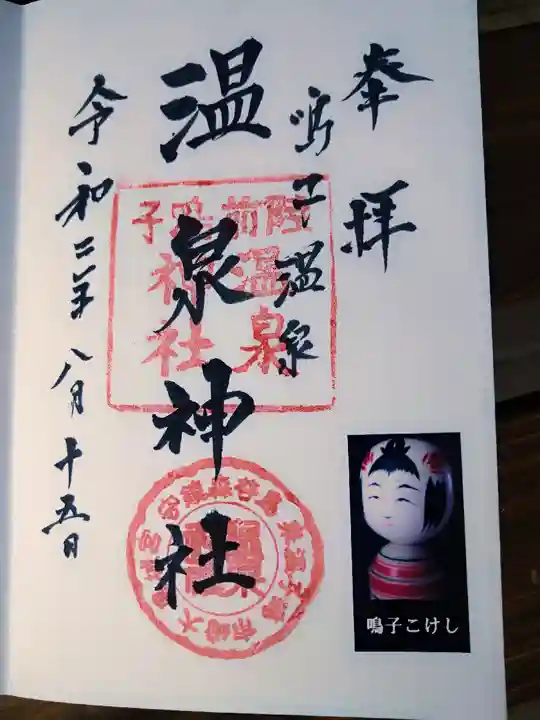 奉拝
鳴子温泉
温泉神社
令和二年八月十五日
陸前鳴子
温泉
神社
鳴子こけし